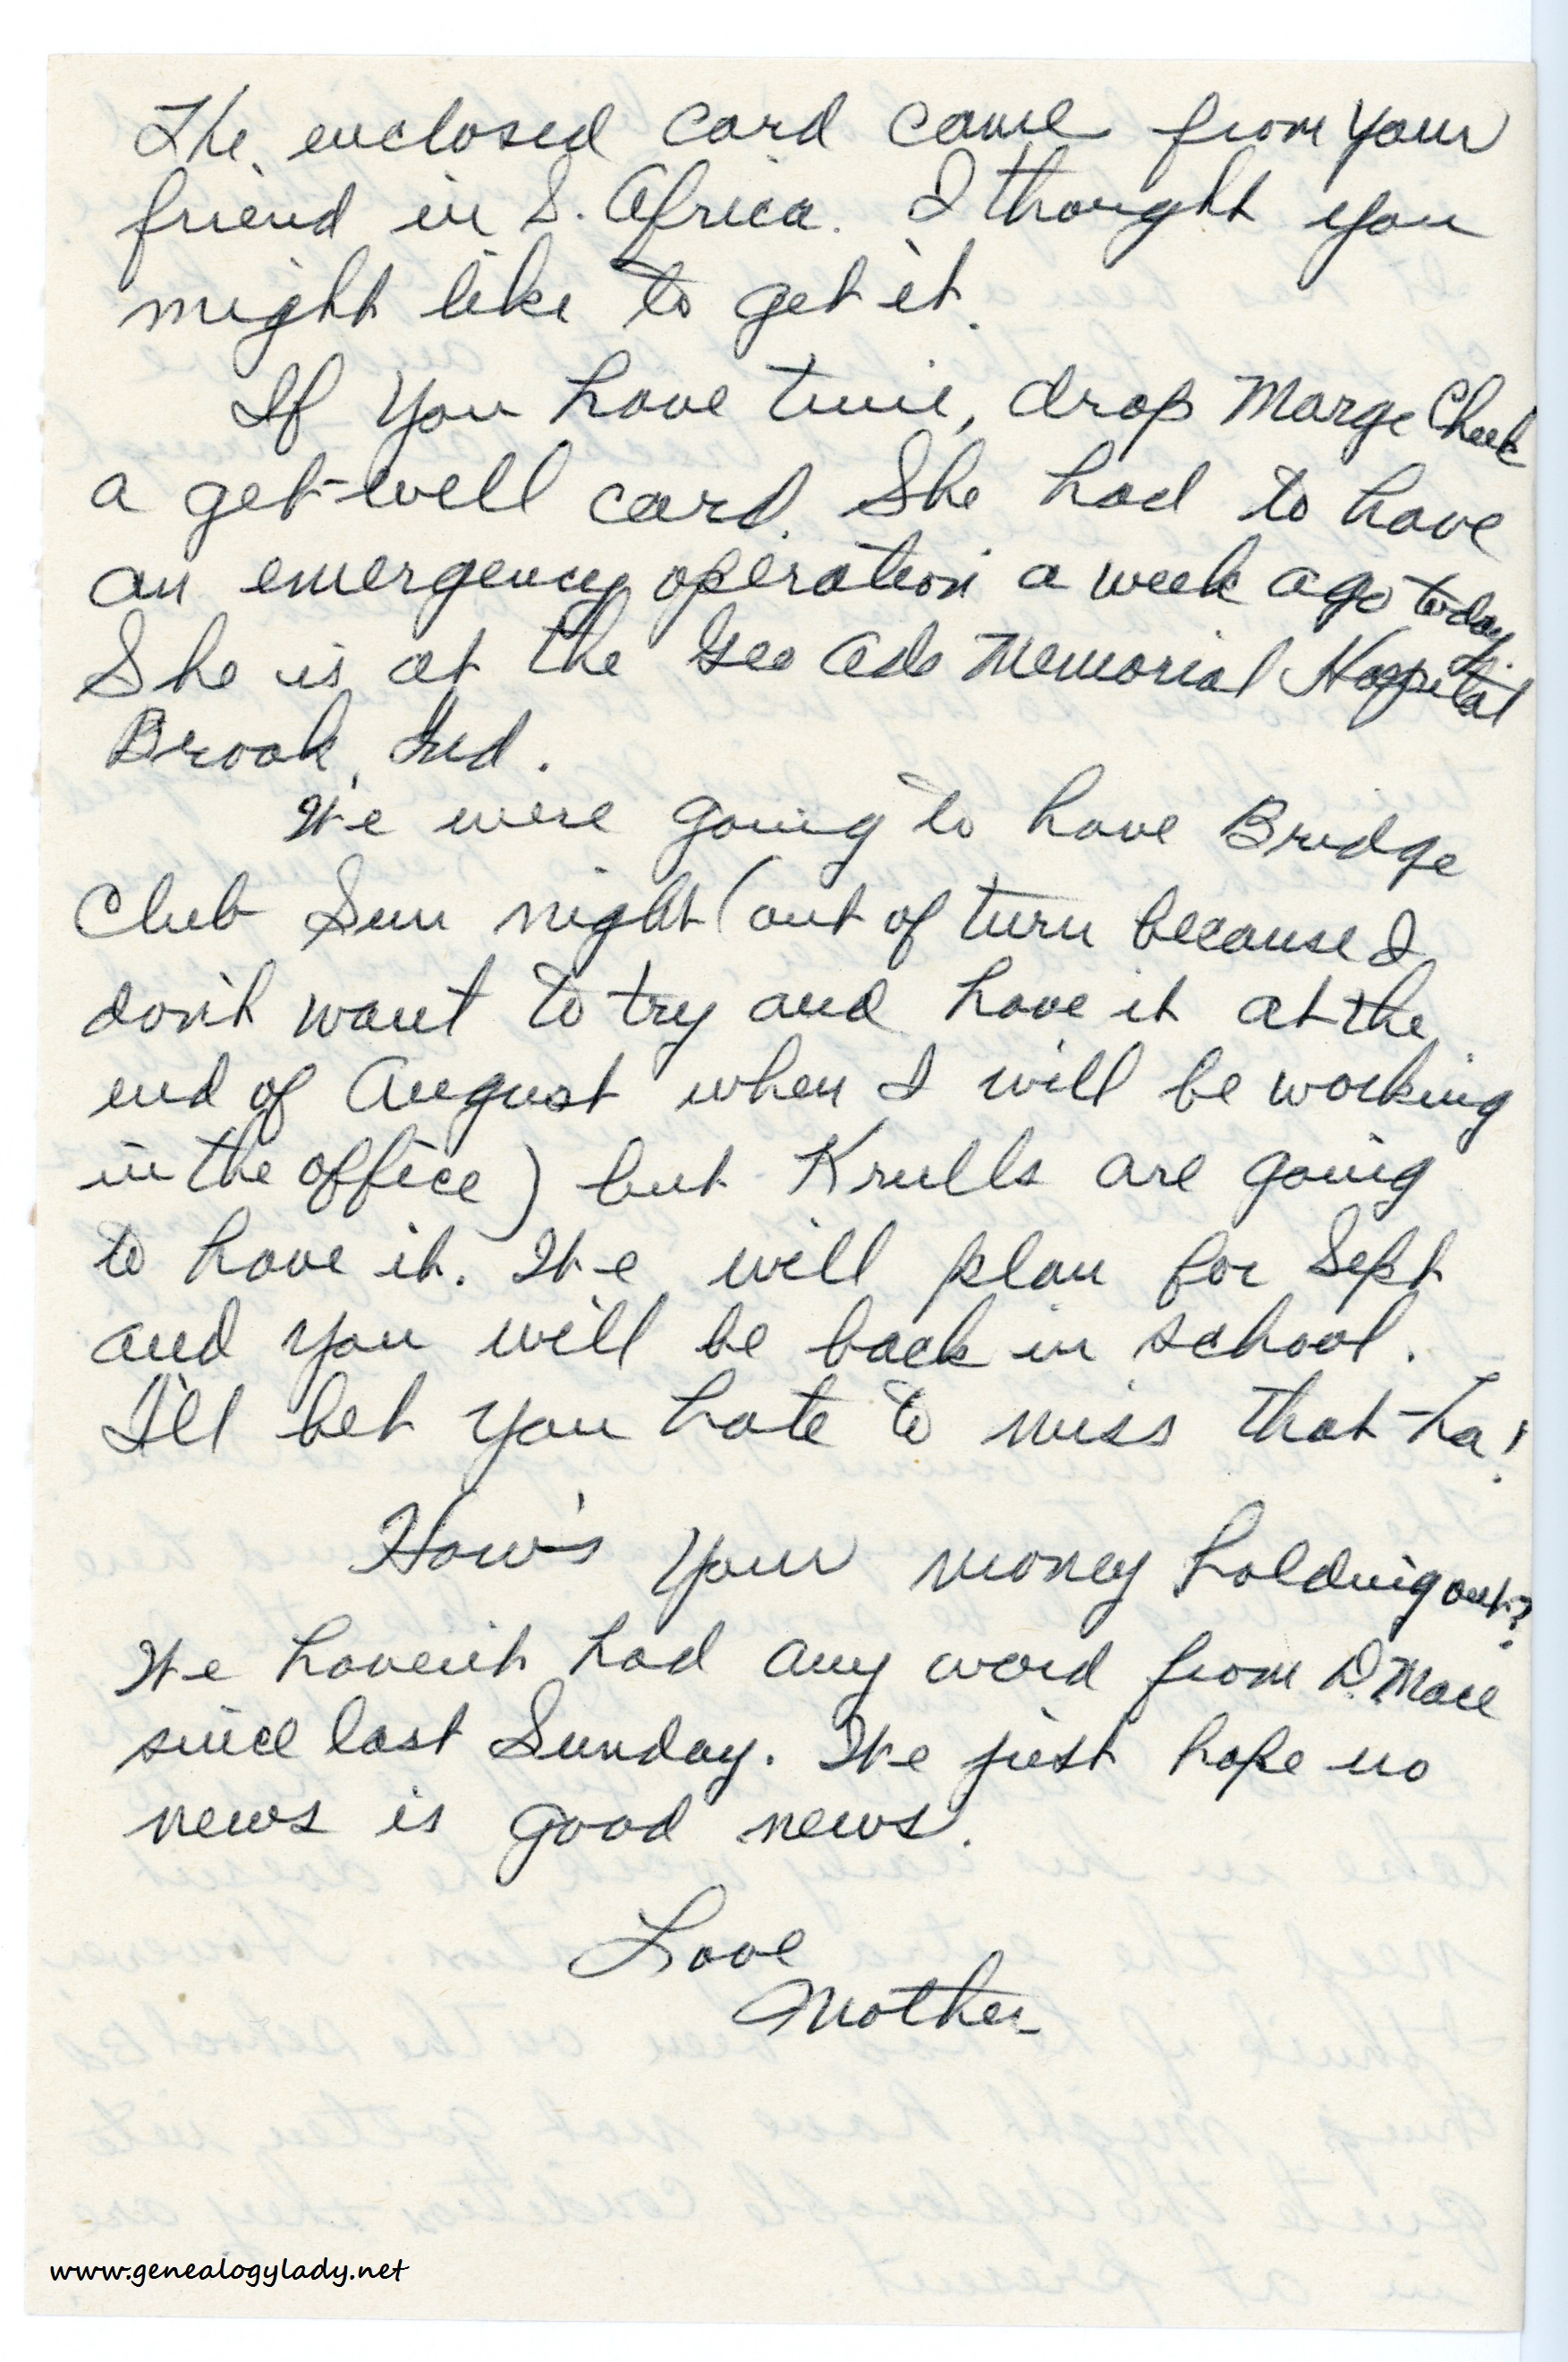 The enclosed card came from your
friend in S. Africa. I thought you
might like to get it.
If you have time, drop Marge Cheek
a get-well card. She had to have
an emergency operation a week ago today.
She is at the Geo Ade Memorial Hospital
Brook, Ind.
We were going to have Bridge
Club Sun night (out of turn because I
don't want to try and have it at the
end of August when I will be working
in the office) but Krulls are going
to have it. We will plan for Sept
and you will be back in school.
I'll bet you hate to miss that - ha!
How's your money holding out?
We haven't had any word from D. Mace
since last Sunday. We just hope no
news is good news.
Love
Mother
www.genealogylady.net